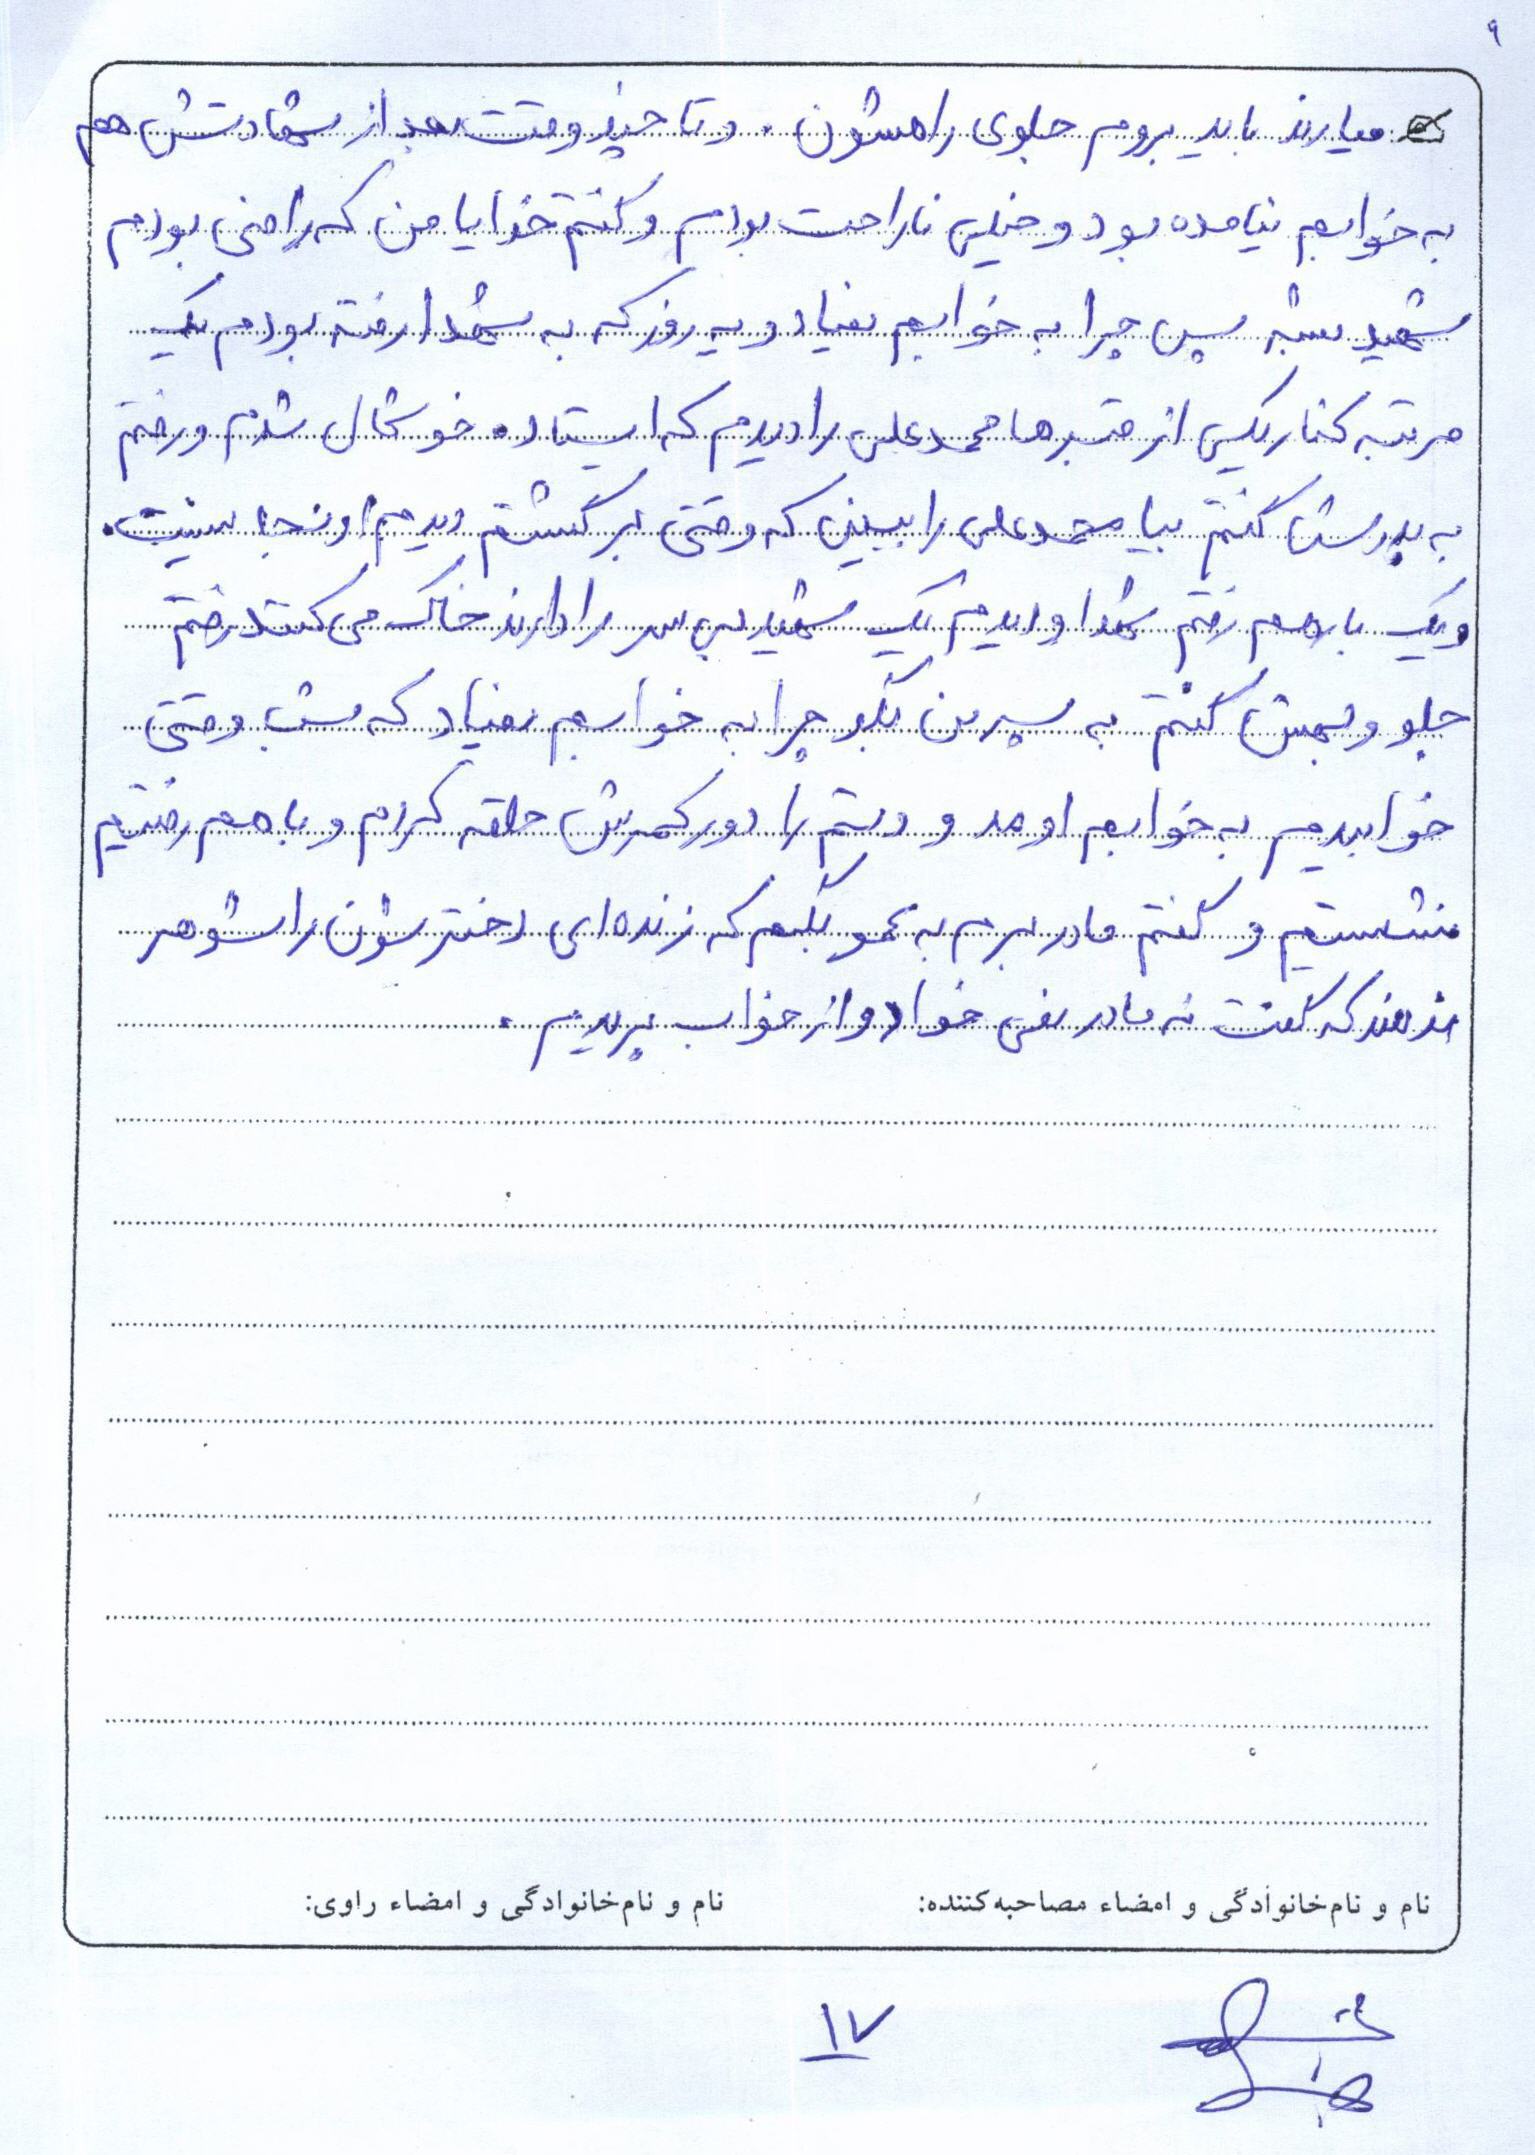 ۹
میارند باید بروم جلوی راهشون . و تا چند وقت بعد از شهادتش هم
به خوابم نیامده بود و خیلی ناراحت بودم و گفتم خدایا من که راضی بودم
شهید بشه پس چرا به خوابم نمیاد و یه روز که به شهدا رفته بودم یک
مرتبه کنار یکی از قبرها محمدعلی را دیدم که ایستاده خوشحال شدم و رفتم
به پدرش گفتم بیا محمدعلی را ببین که وقتی برگشتم دیدم اونجا نیست.
و یک بار هم رفتم شهدا و دیدم یک شهید بی سر را دارند خاک می کنند رفتم
جلو و بهش گفتم به پسر من بگو چرا به خوابم نمیاد که شب وقتی
خوابیدم به خوابم اومد و دستم را دور کمرش حلقه کردم و با هم رفتیم
نشستیم و گفتم مادر برم به عمو بگم که زنده ای دخترشون را شوهر
ندهند که گفت نه مادر نمی خواد و از خواب پریدم .
نام و نام‌خانوادگی و امضاء مصاحبه‌کننده: نام و نام‌خانوادگی و امضاء راوی:
۱۷